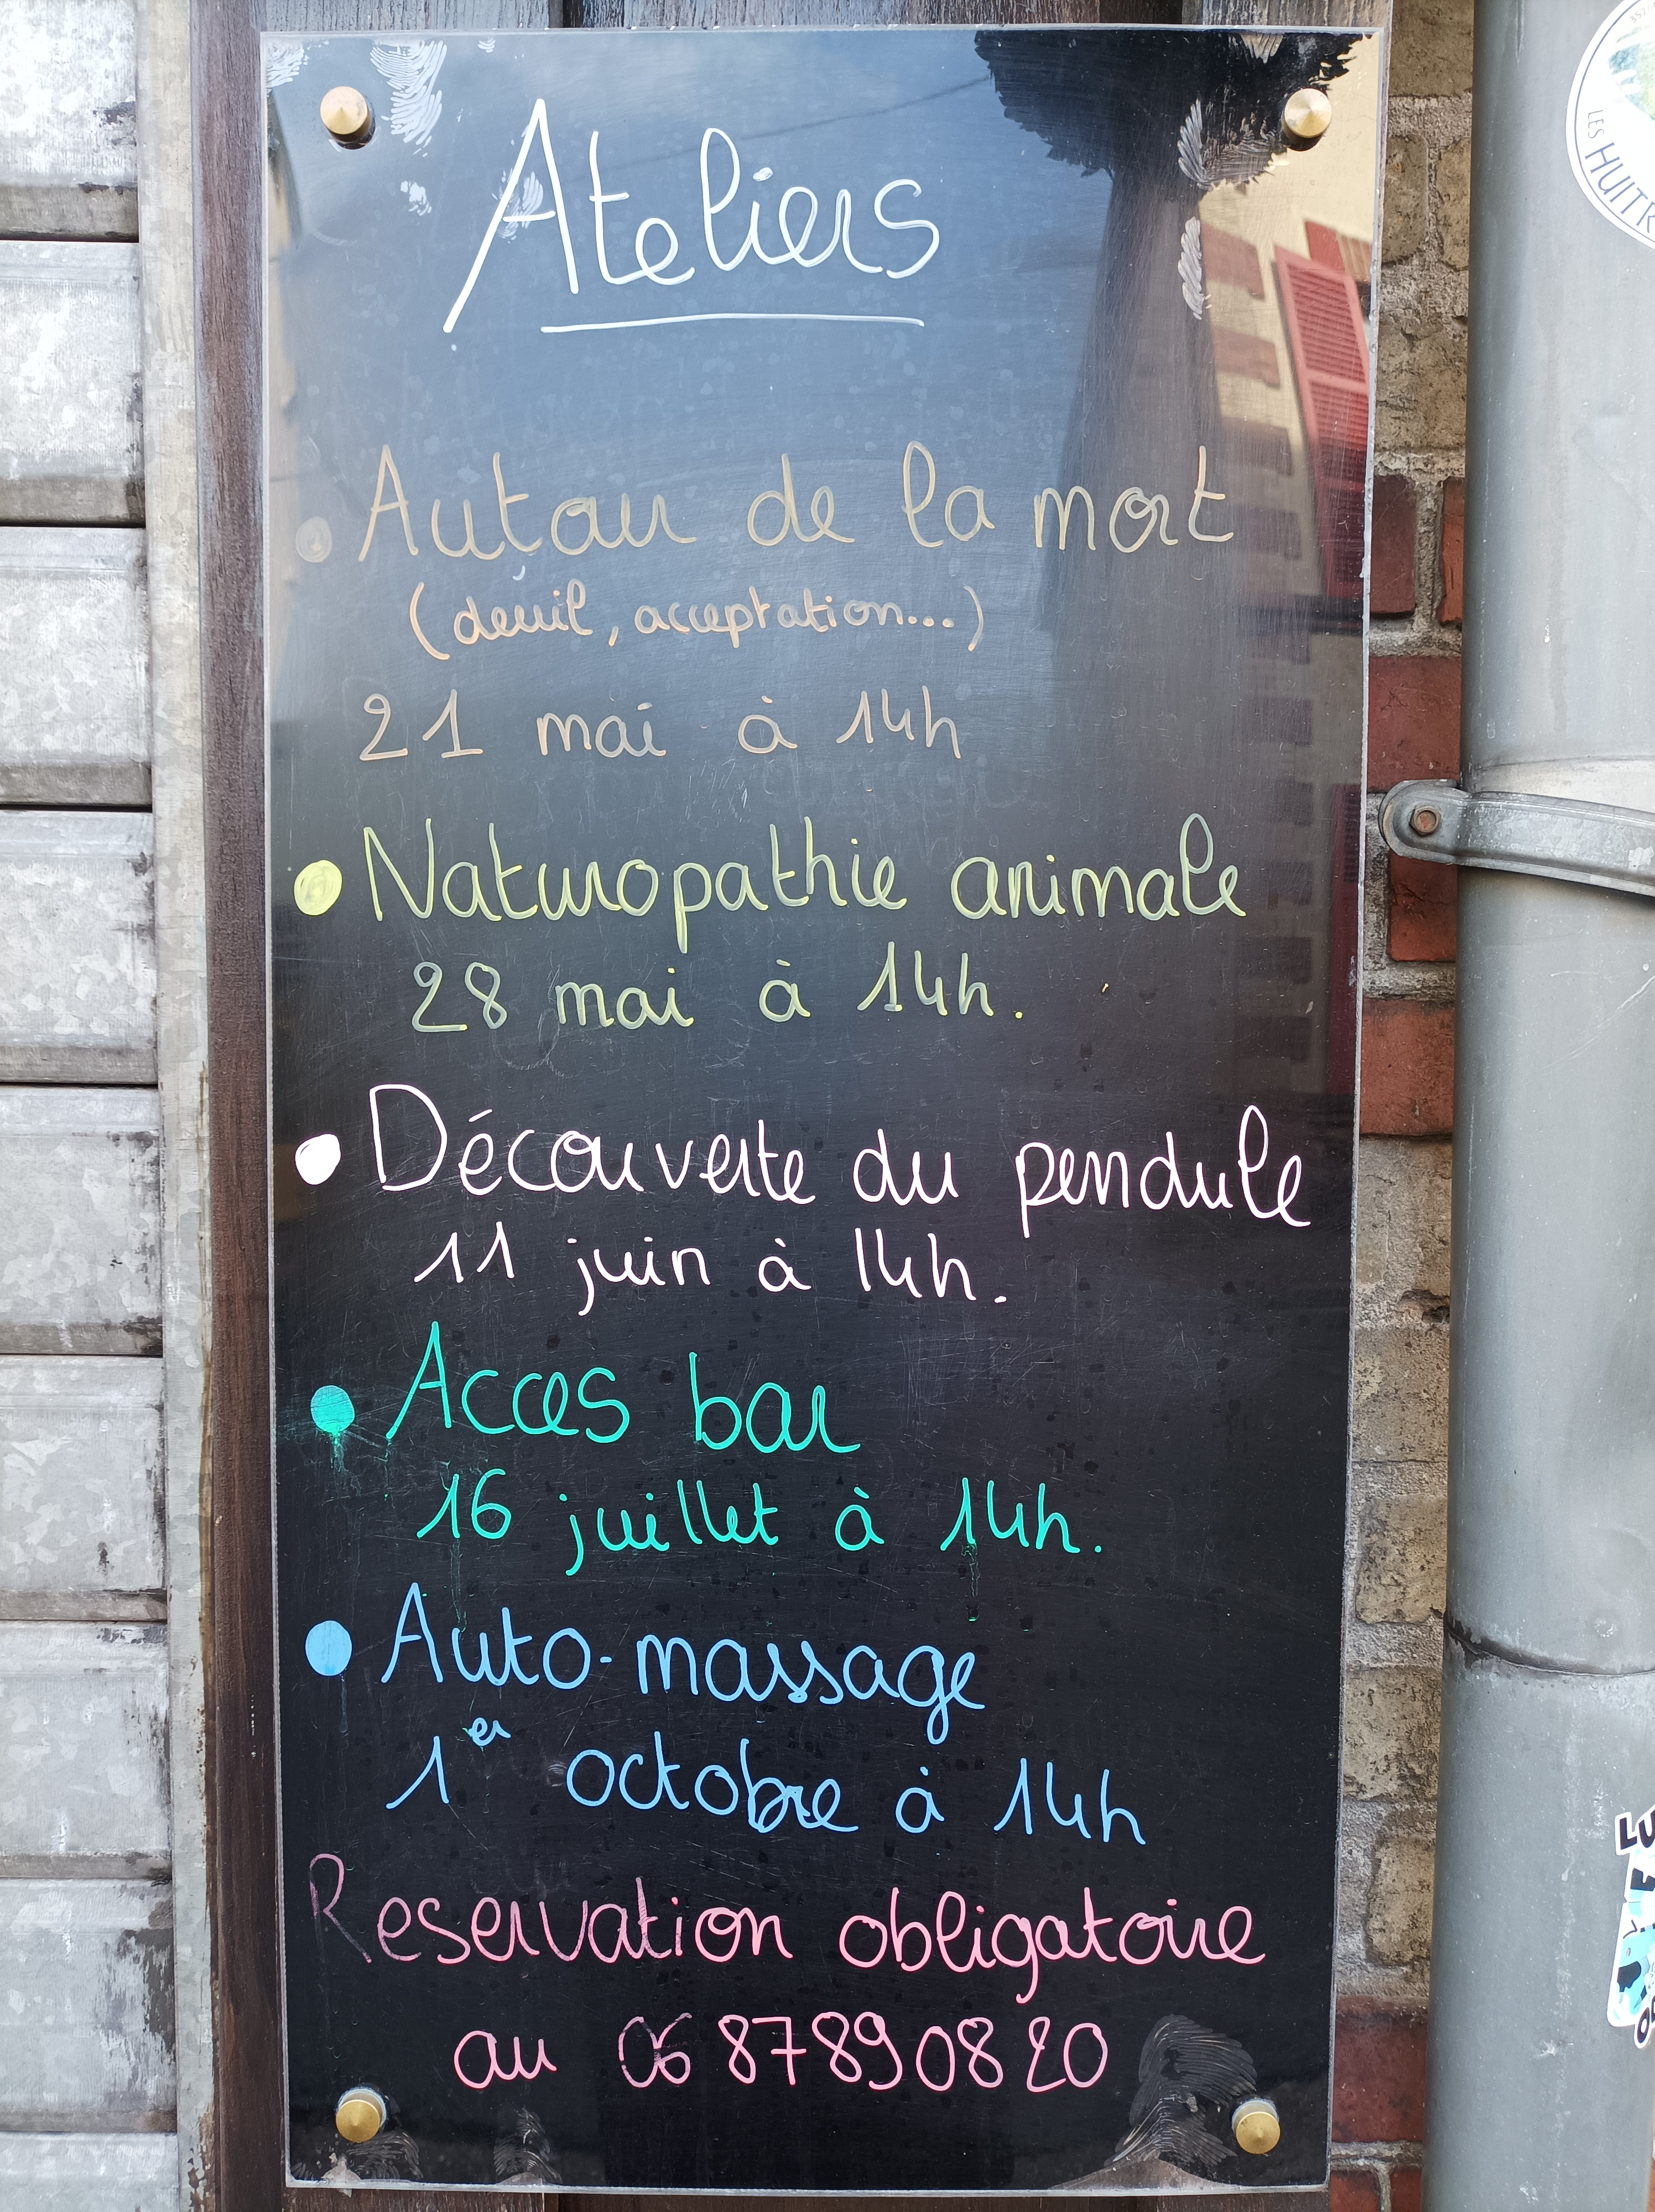 Ateliers
• Autour de la mort
(deuil, acceptation...)
21 mai à 14h
• Naturopathie animale
28 mai à 14h.
• Découverte du pendule
11 juin à 14h.
• Acces bar
16 juillet à 14h.
• Auto-massage
1er octobre à 14h
Reservation obligatoire
au 06 87 89 08 20
LES HUITR
LU